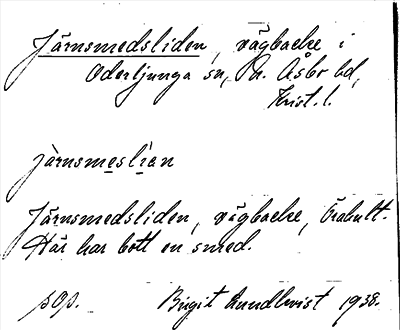 Järnsmedsliden, vägbacke i
Oderljunga sn, N. Åsbo hd,
Krist. l.
järnsmeslian
Järnsmedsliden, vägbacke, Örahult.
Här har bott en smed.
pop. Birgit Rundkvist 1938.